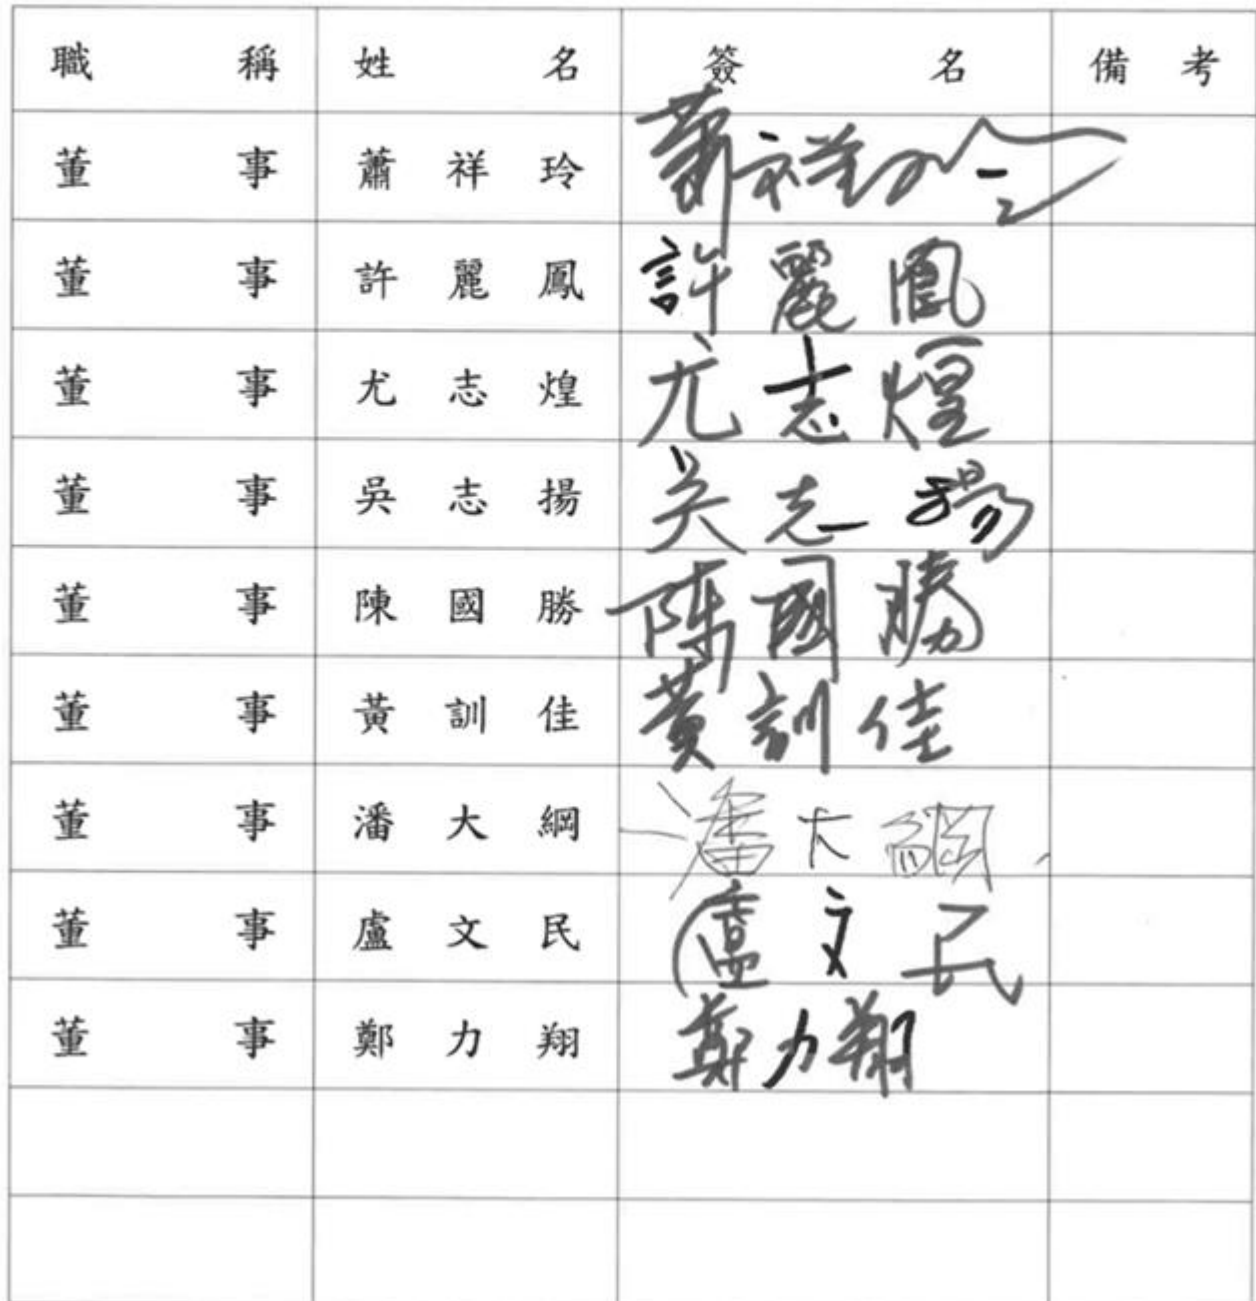 職稱 姓名 簽名 備考
董事 蕭祥玲 蕭祥玲
董事 許麗鳳 許麗鳳
董事 尤志煌 尤志煌
董事 吳志揚 吴志揚
董事 陳國勝 陳國勝
董事 黃訓佳 黃訓佳
董事 潘大綱 潘大綱
董事 盧文民 盧文民
董事 鄭力翔 鄭力翔